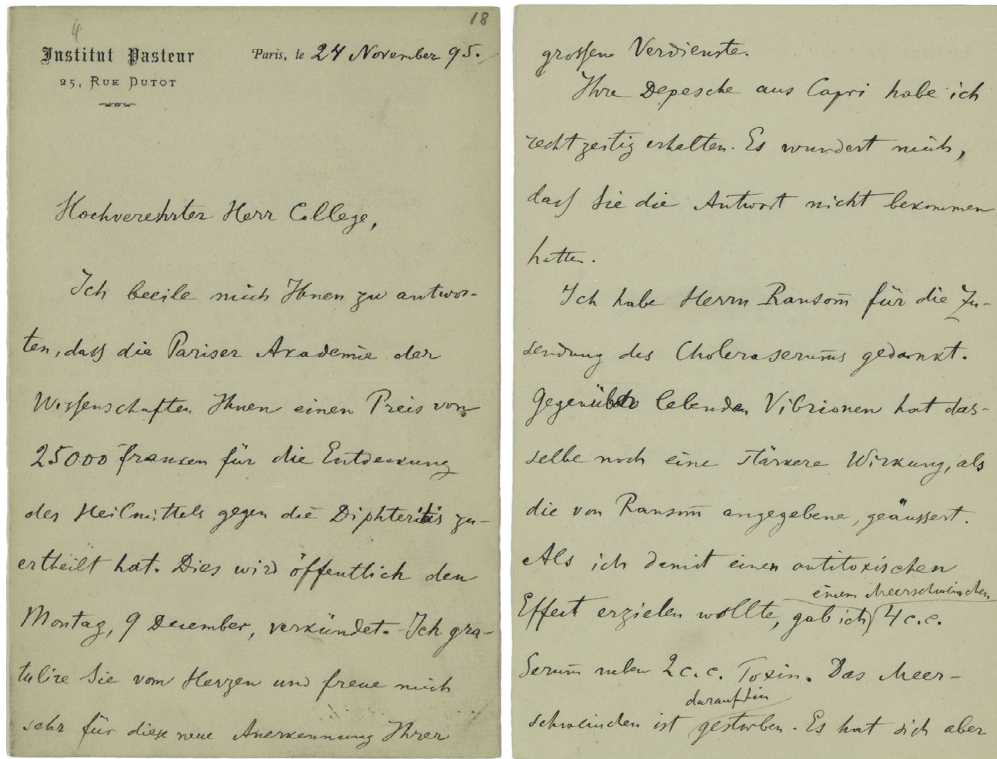 4
18
Institut Pasteur
25, Rue Dutot
Paris, le 24 November 95.
Hochverehrter Herr College,
Ich beeile mich Ihnen zu antwor-
ten, dass die Pariser Akademie der
Wissenschaften Ihnen einen Preis von
25000 franken für die Entdeckung
des Heilmittels gegen die Diphteritis zu-
ertheilt hat. Dies wird öffentlich den
Montag, 9 December, verkündet. Ich gra-
tulire Sie vom Herzen und freue mich
sehr für diese neue Anerkennung Ihrer
grossen Verdienste.
Ihre Depesche aus Capri habe ich
rechtzeitig erhalten. Es wundert mich,
dass Sie die Antwort nicht bekommen
hatten.
Ich habe Herrn Ransom für die Zu-
sendung des Choleraserums gedankt.
Gegenüber lebenden Vibrionen hat das-
selbe noch eine stärkere Wirkung, als
die von Ransom angegebene, geäussert.
Als ich damit einen antitoxischen
einem Meerschweinchen
Effect erzielen wollte, gab ich 4 c.c.
Serum neben 2 c.c. Toxin. Das Meer-
daraufhin
schweinchen ist gestorben. Es hat sich aber